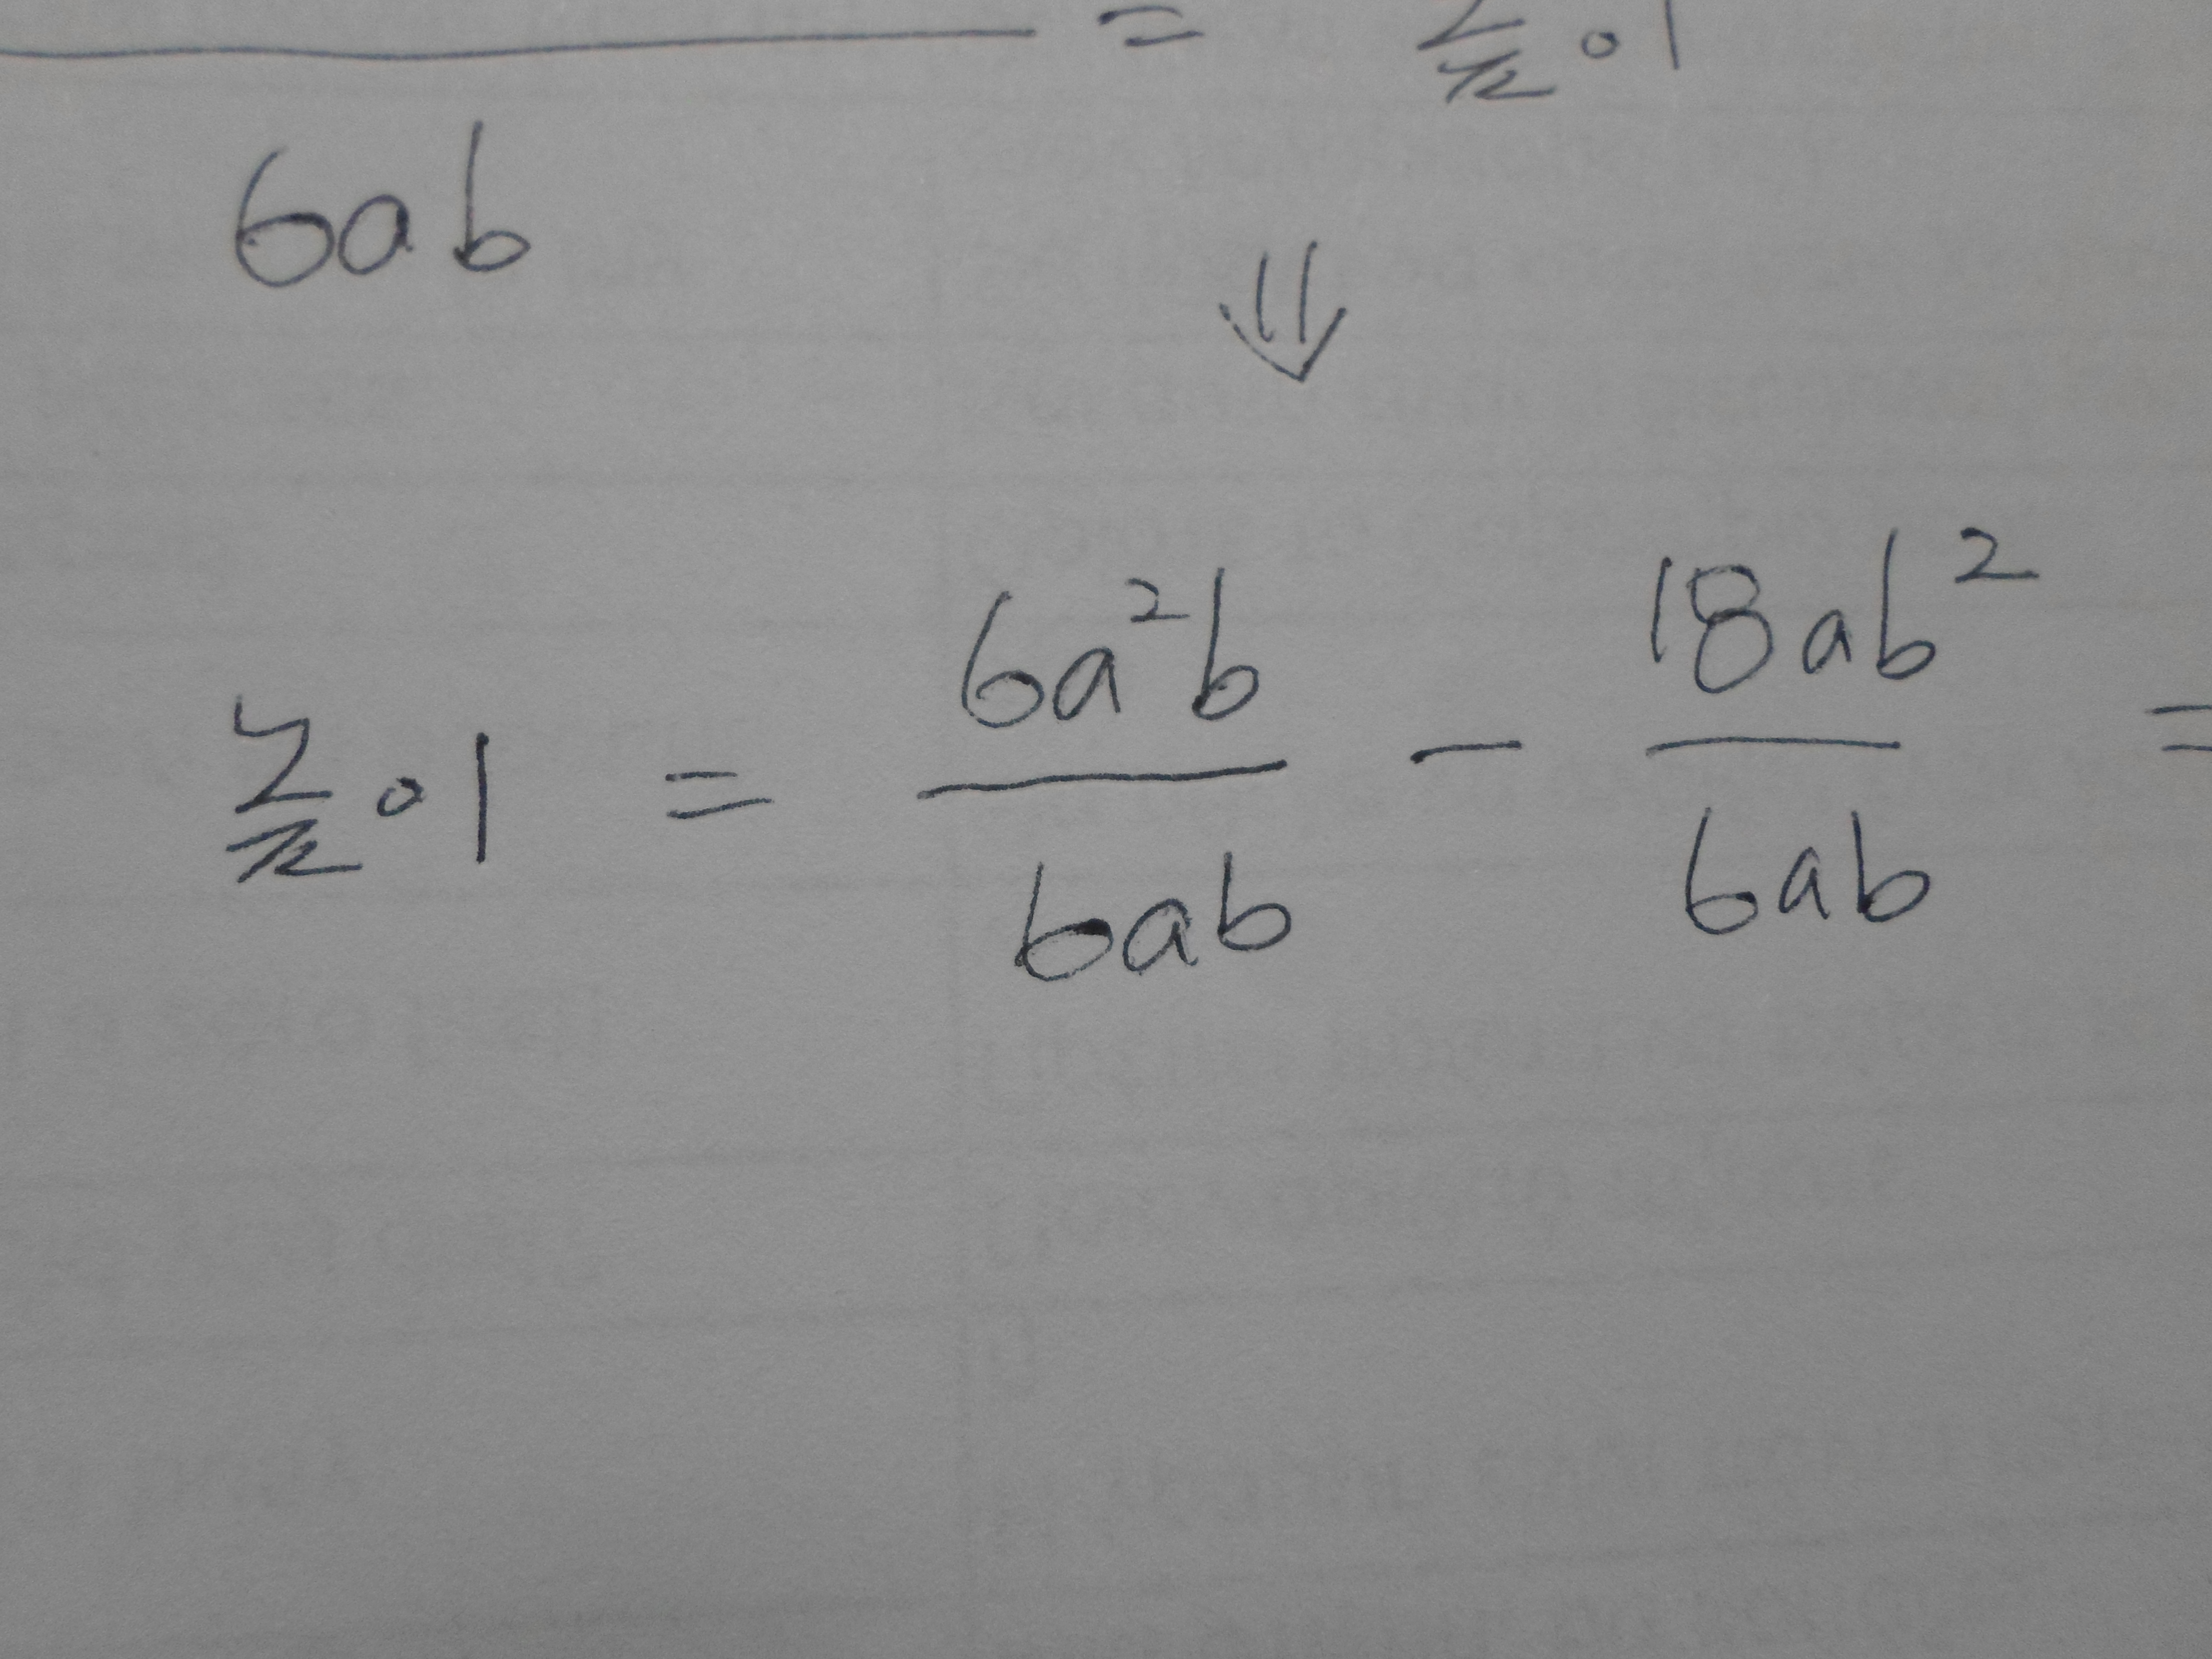 = .1
6ab
⇓
.1 = 6a²b / 6ab − 18ab² / 6ab =